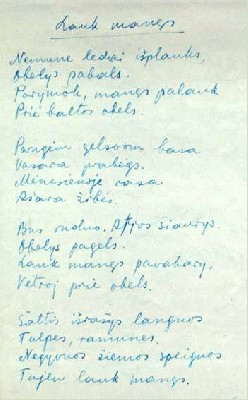 Lauk manęs
Nemune ledai išplauks,
Obelys pabals.
Parymok, manęs palauk
Prie baltos obels.
Pavgėm gelsvom basa
Vasara prabėgs.
Mėnesienoje rasa
Ašara žibės.
Bus ruduo. Atjos šiaurys.
Obelys pagels.
Lauk manęs pavakary.
Vėtroj prie obels.
Šaltis išrašys languos
Tulpes, ramunes.
Negyvuos žiemos speiguos
Tujen lauk manęs.